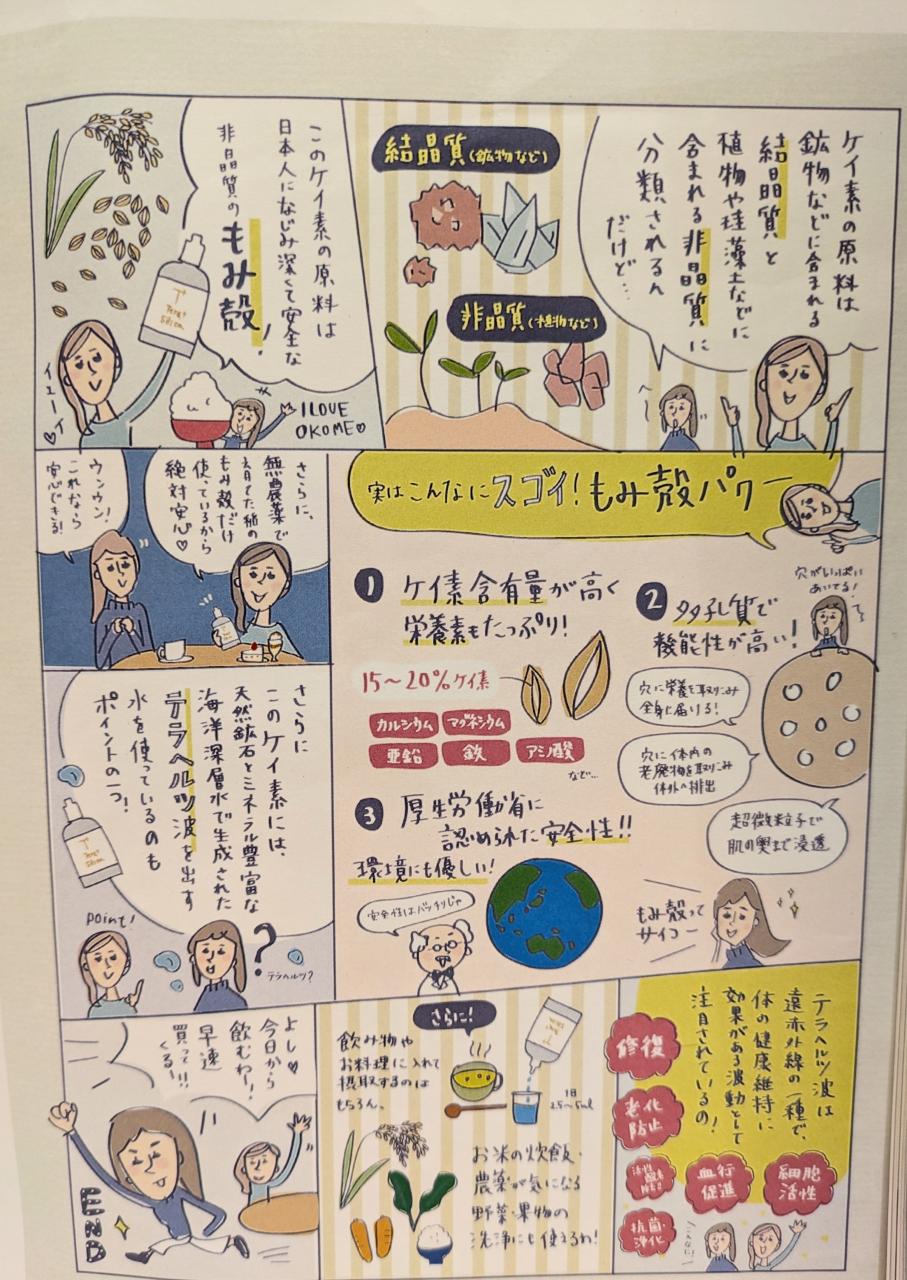 ケイ素の原料は
鉱物などに含まれる
結晶質と
植物や珪藻土などに
含まれる非晶質に
分類されるん
だけど…
結晶質(鉱物など)
非晶質(植物など)
このケイ素の原料は
日本人になじみ深くて安全な
非晶質の
もみ殻!
I LOVE
OKOME♡
さらに、
無農薬で
育てた稲の
もみ殻だけ
使っているから
絶対安心♡
ウンウン!
これなら
安心できる!
実はこんなにスゴイ!もみ殻パワー
1 ケイ素含有量が高く
栄養素もたっぷり!
15〜20%ケイ素
カルシウム
マグネシウム
亜鉛
鉄
アミノ酸
など…
2 多孔質で
機能性が高い!
穴がいっぱい
あいてる!
穴に栄養を取りこみ
全身に届ける!
穴に体内の
老廃物を取りこみ
体外へ排出
超微粒子で
肌の奥まで浸透
3 厚生労働省に
認められた安全性!!
環境にも優しい!
安全性はバッチリじゃ
もみ殻って
サイコー
さらに
このケイ素には、
天然鉱石とミネラル豊富な
海洋深層水で生成された
テラヘルツ波を出す
水を使っているのも
ポイントの一つ!
Point!
?
テラヘルツ?
テラヘルツ波は
遠赤外線の一種で、
体の健康維持に
効果がある波動として
注目されているの!
修復
老化
防止
血行
促進
細胞
活性
抗菌・
浄化
さらに!
飲み物や
お料理に入れて
摂取するのは
もちろん、
1日
2.5〜5ml
お米の炊飯・
農薬が気になる
野菜・果物の
洗浄にも使えるわ!
よし♡
今日から
飲むわー!
早速
買って
くる!!
END